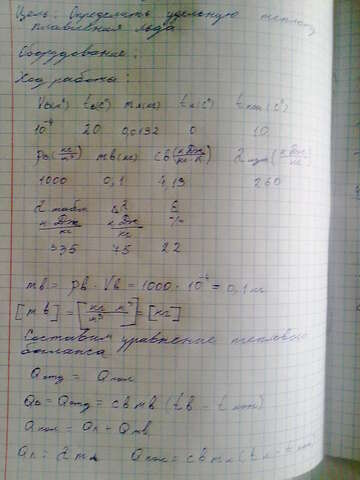 Цель: Определить удельную теплоту
плавления льда.
Оборудование:
Ход работы:
Vв(м³) tв(С°) mл(кг) tл(С°) tкон(С°)
10⁻⁴ 20 0,0132 0 10
ρв(кг/м³) mв(кг) cв(кДж/кг·К) λизм(кДж/кг)
1000 0,1 4,19 260
λтабл кДж/кг Δλ кДж/кг ε %
335 75 22
mв = ρв · Vв = 1000 · 10⁻⁴ = 0,1 кг
[mв] = [кг м³/м³] = [кг]
Составим уравнение теплового
баланса
Qотд = Qпол
Qв = Qотд = cвmв(tв - tкон)
Qпол = Qл + Qтв
Qл = λmл